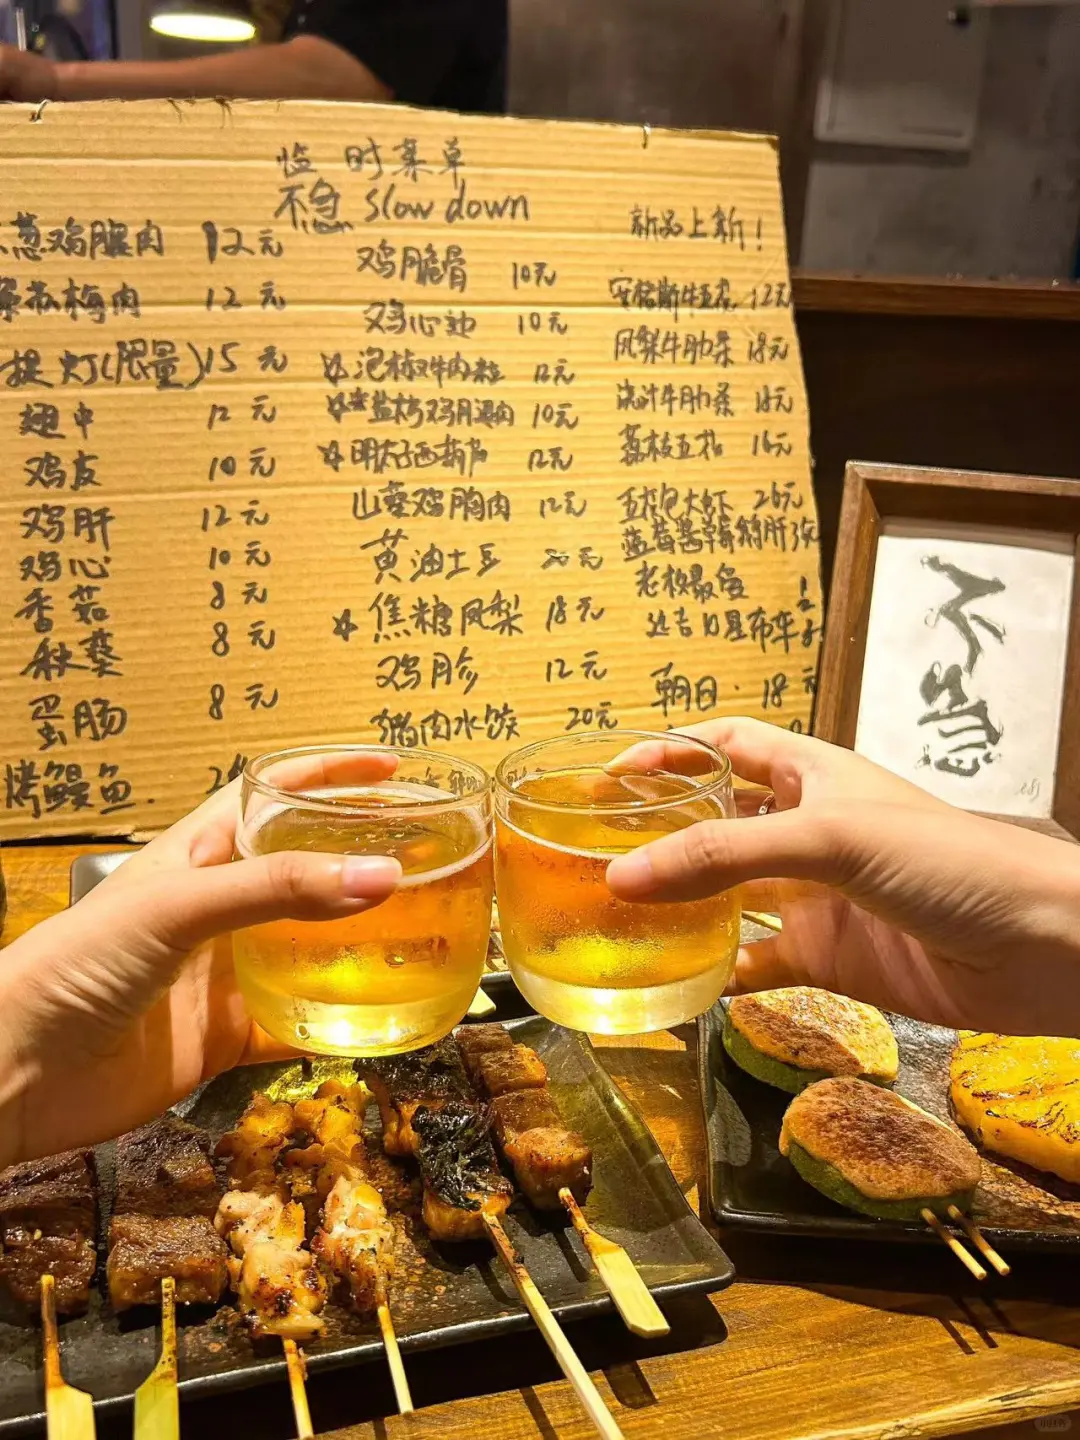 临时菜单
不急 slow down
葱鸡腿肉 12元
紫苏梅肉 12元
提灯(限量) 15元
翅中 12元
鸡皮 10元
鸡肝 12元
鸡心 10元
香菇 8元
秋葵 8元
蛋肠 8元
烤鳗鱼.
鸡脆骨 10元
鸡心边 10元
泡椒牛肉粒 12元
盐烤鸡腿肉 10元
明太子西葫芦 12元
山葵鸡胸肉 12元
黄油土豆 20元
焦糖凤梨 18元
鸡胗 12元
猪肉水饺 20元
新品上新!
安格斯牛五花 12元
凤梨牛肋条 18元
烧汁牛肋条 18元
荔枝五花 16元
五花包大虾 26元
蓝莓酱鹅肝
老板最
达吉
朝日. 18元
不急